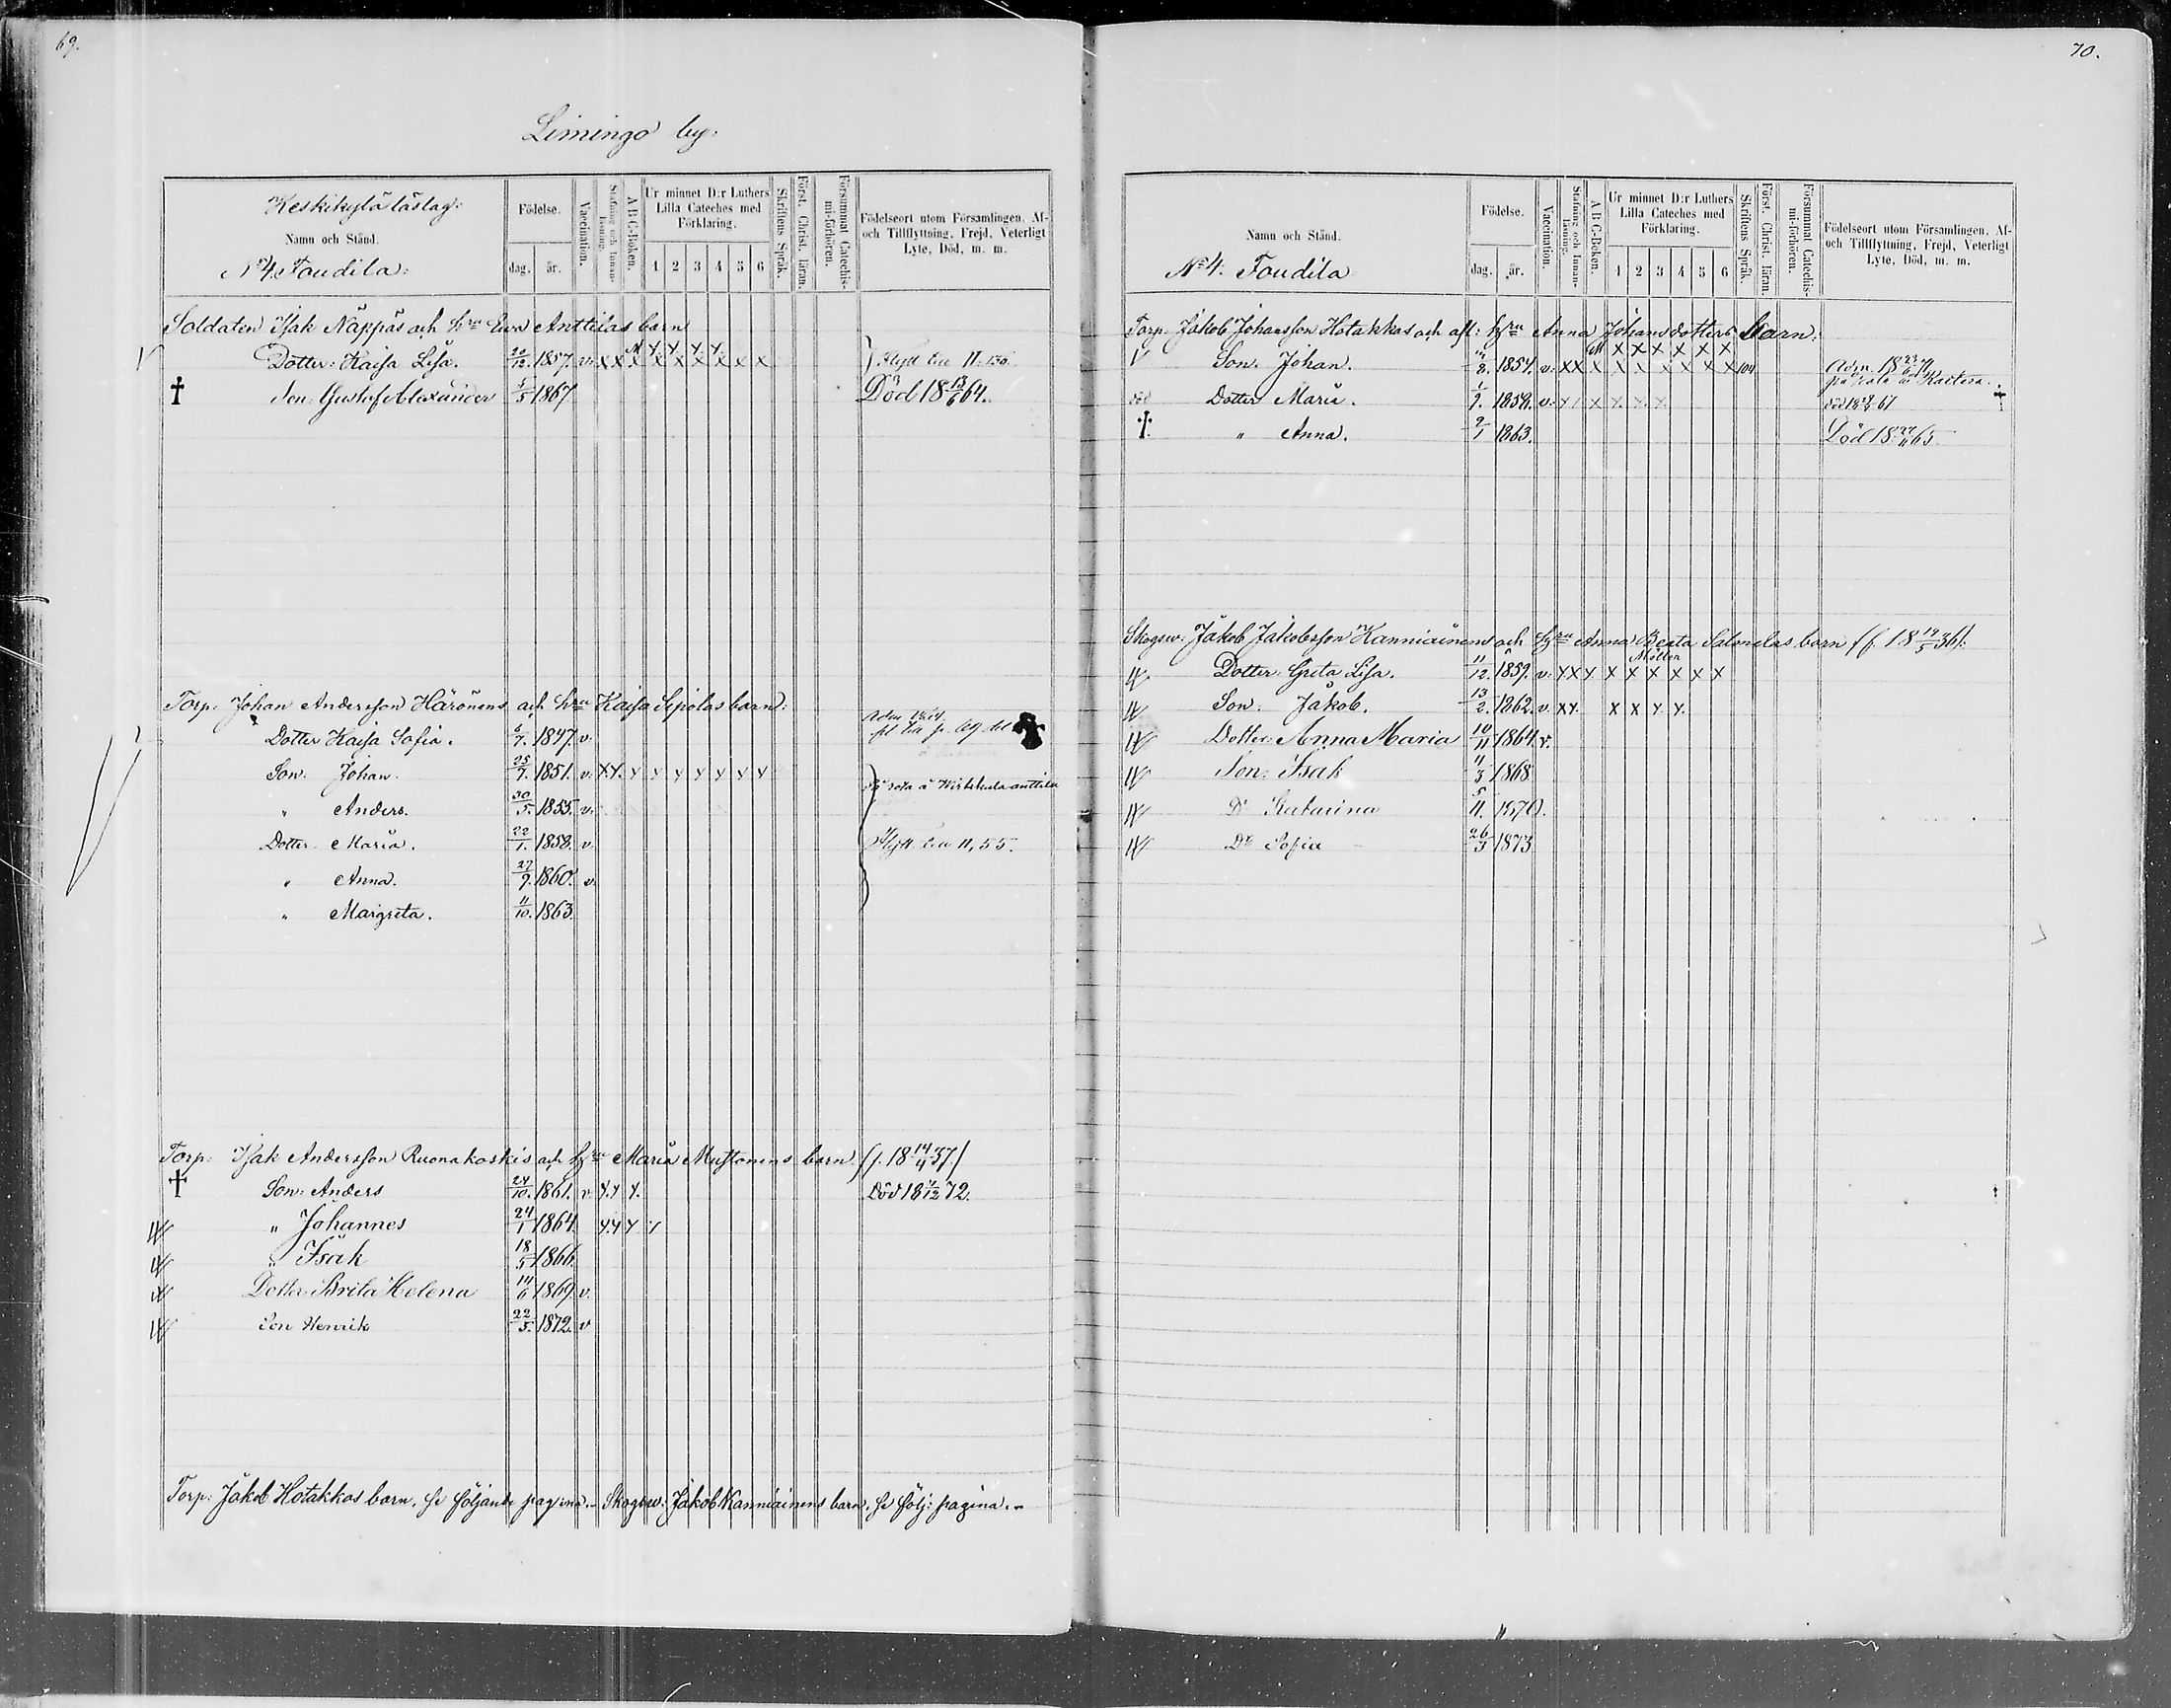 69.
Limingo by:
Keskikylä läslag:
Namn och Stånd.
No 4. Foudila:
Födelse.
dag. år.
Vaccination.
Stafning och Innan-läsning.
A B C-Boken.
Ur minnet D:r Luthers Lilla Cateches med Förklaring.
1 2 3 4 5 6
Skriftens Språk.
Först. Christ. läran.
Försummat Catechis-mi-förhören.
Födelseort utom Församlingen, Af- och Tillflyttning, Frejd, Veterligt Lyte, Död, m. m.
Soldaten Isak Näppäs och hru Eva Anttilas barn
Dotter: Kaisa Lisa. 20/12. 1857. v: x x x x x x x x x Flytt
Son: Gustof Alexander 5/5 1867 Död 18 13/6 64.
Torp: Johan Andersson Härönens och hru Kaisa Sipolas barn:
Dotter Kaisa Sofia. 6/7. 1847. v.
Son: Johan. 25/7. 1851. v: x x. x x x x x x x
" Anders. 30/5. 1855. v:
Dotter Maria. 22/1. 1858. v. Flytt 11, 55.
" Anna. 27/9. 1860. v.
" Margreta. 11/10. 1863.
Torp: Isak Andersson Ruonakoskis och hru Maria Mustonens barn. (f. 18 14/4 37)
Son: Anders 24/10. 1861. v x.x x. Död 18 4/12 72.
" Johannes 24/1 1864. x.x x x
" Isak 18/5 1866.
Dotter Brita Helena 14/6 1869. v.
Son Henrik 22/5. 1872. v
Torp: Jakob Hotakkas barn, se följande pagina. – Skogsv: Jakob Kanniainens barn, se följ: pagina. –
70.
Namn och Stånd.
No 4. Foudila
Födelse.
dag. år.
Vaccination.
Stafning och Innan-läsning.
A B C-Boken.
Ur minnet D:r Luthers Lilla Cateches med Förklaring.
1 2 3 4 5 6
Skriftens Språk.
Först. Christ. läran.
Försummat Catechis-mi-förhören.
Födelseort utom Församlingen, Af- och Tillflyttning, Frejd, Veterligt Lyte, Död, m. m.
Torp. Jakob Johansson Hotakkas och afl: hru Anna Johansdotters barn:
x x x x x x
Son. Johan. 1854. v: x x x x x x x x x
Dotter Maria. 1/9. 1859. v: x x x x. x. x
" Anna. 2/1 1863. Död 18 65.
Skogsv: Jakob Jakobsson Kanniainens och hru Anna Beata Salonelas barn (f. 18 19/5 36):
Dotter: Greta Lisa. 11/12. 1859. v: x x x x x x x x x
Son: Jakob. 13/2. 1862. v. x x. x x x x.
Dotter: Anna Maria 10/11 1864. v.
Son: Isak 4/3 1868
Dr Katarina 5/11. 1870.
Dr Sofia 26/3 1873